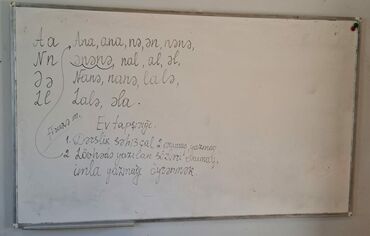 A a Ana, ana, nə, ən, nənə,
N n ənənə, nal, al, əl,
Ə ə Nanə, nanə, lalə,
L l Lalə, əla.
Ev tapşırığı.
1. Dərslik səh. 2 yazmaq
2. Lövhədə yazılan sözləri oxumağı,
imla yazmağı öyrənmək.